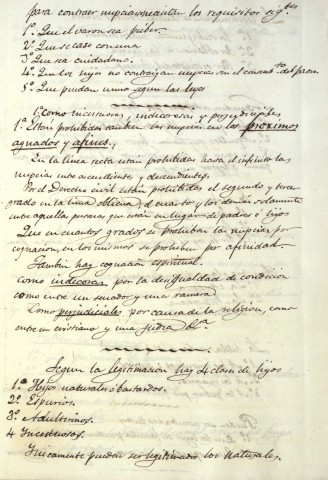 para contraer nupcias necesitan los requisitos sigtes
1º. Que el varon sea púber.
2º Que se case con una
3º Que sea ciudadano.
4º Que los hijos no contraigan nupcias sin el consentto. del padre.
5º Que puedan unirse segun las leyes
1º como incestuosas, indecorosas y perjudiciales,
1º Están prohibidas tambien las nupcias en los próximos
agnados y afines.
En la linea recta están prohibidas hasta el infinito las
nupcias entre ascendientes y descendientes.
Por el Derecho civil están prohibidas el segundo y tercer
grado en la linea oblicua, el cuarto y los demás solamente
entre aquellas personas, que están en lugar de padres ó hijos
Que en cuantos grados se prohiban las nupcias por
cognacion, en los mismos se prohiben por afinidad.
Tambien hay cognacion espiritual.
Como indecoras por la desigualdad de condición
como entre un senador y una ramera
Como perjudiciales por causa de la religion, como
entre un cristiano y una judia &a.
Segun la legitimacion hay 4 clases de hijos
1º Hijos naturales ó bastardos.
2º. Espurios.
3º Adulterinos.
4 Incestuosos.
Unicamente pueden ser legitimados los naturales.